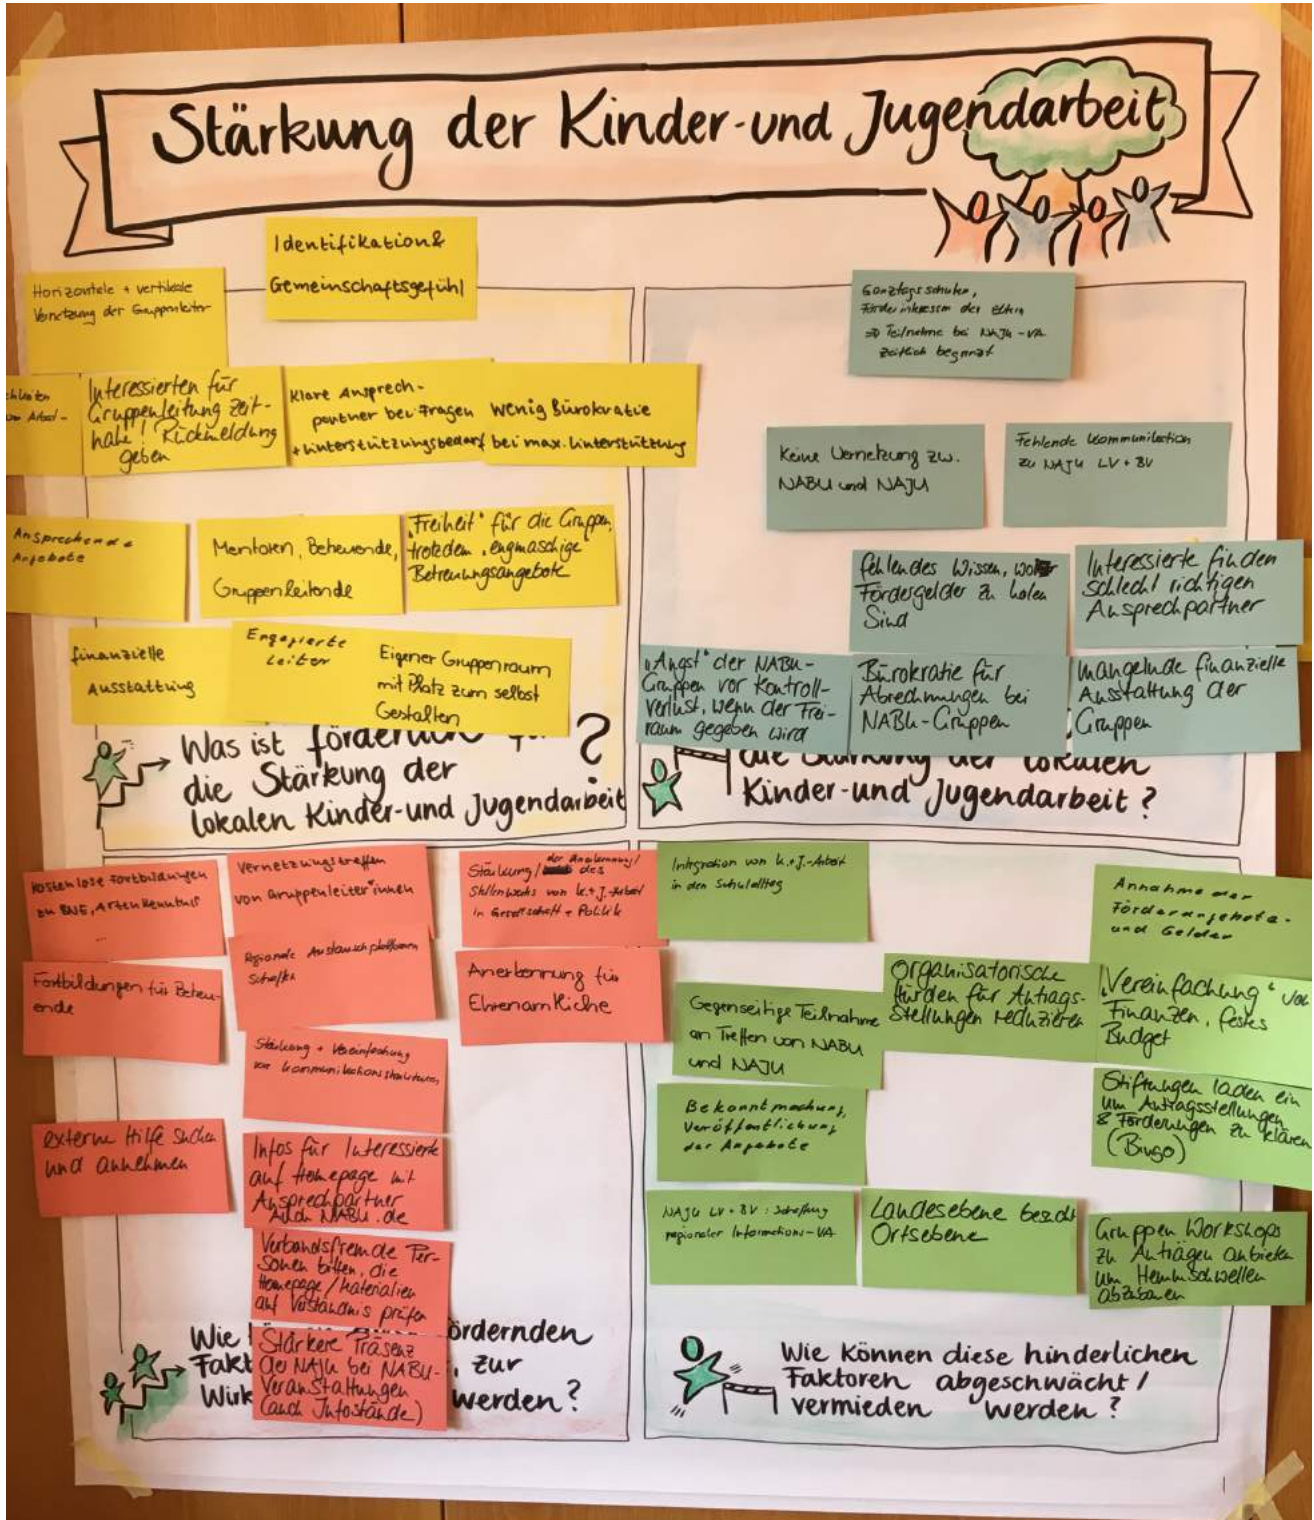 Stärkung der Kinder-und Jugendarbeit
Identifikation &
Gemeinschaftsgefühl
Horizontale + vertikale
Vernetzung der Gruppenleiter
Interessierten für
Gruppenleitung zeit-
nahe! Rückmeldung
geben
Klare Ansprech-
partner bei Fragen
+ Unterstützungsbedarf
Wenig Bürokratie
bei max. Unterstützung
Ansprechende
Angebote
Mentoren, Betreuende,
Gruppenleitende
"Freiheit" für die Gruppen,
trotzdem "engmaschige
Betreuungsangebote
finanzielle
Ausstattung
Engagierte
Leiter
Eigener Gruppenraum
mit Platz zum selbst
Gestalten
Was ist förderlich
?
die Stärkung der
lokalen Kinder-und Jugendarbeit
Ganztagsschulen,
Förderinteressen der Eltern
=> Teilnahme bei NAJU-VA
zeitlich begrenzt
Keine Vernetzung zw.
NABU und NAJU
Fehlende Kommunikation
zu NAJU LV + BV
fehlendes Wissen,
Fördergelder zu holen
sind
Interessierte finden
schlecht richtigen
Ansprechpartner
"Angst" der NABU-
Gruppen vor Kontroll-
verlust, wenn der Frei-
raum gegeben wird
Bürokratie für
Abrechnungen bei
NABU-Gruppen
mangelnde finanzielle
Ausstattung der
Gruppen
die Stärkung der lokalen
Kinder-und Jugendarbeit?
kostenlose Fortbildungen
zu BNE, Artenkenntnis
...
Vernetzungstreffen
von Gruppenleiter*innen
Stärkung/ der Anerkennung/ des
Stellenwerts von K.+J.-Arbeit
in Gesellschaft + Politik
Fortbildungen für Betreu-
ende
Regionale Austauschplattform
schaffen
Anerkennung für
Ehrenamtliche
Stärkung + Vereinfachung
von Kommunikationsstrukturen
externe Hilfe suchen
und annehmen
Infos für Interessierte
auf Homepage mit
Ansprechpartner
Auch NABU.de
Verbandsfremde Per-
sonen bitten, die
Homepage/Materialien
auf Verständnis prüfen
Stärkere Präsenz
der NAJU bei NABU-
Veranstaltungen
(auch Infostände)
Wie
ördernden
Fakt
, zur
Wirk
werden?
Integration von K.+J.-Arbeit
in den Schulalltag
Annahme der
Förderangebote-
und Gelder
Organisatorische
Hürden für Antrags-
Stellungen reduzieren
"Vereinfachung" von
Finanzen, festes
Budget
Gegenseitige Teilnahme
an Treffen von NABU
und NAJU
Bekanntmachung,
Veröffentlichung
der Angebote
Stiftungen laden ein
um Antragsstellungen
& Förderungen zu klären
(Bingo)
NAJU LV + BV: Schaffung
regionaler Informations-VA
Landesebene besucht
Ortsebene
Gruppen Workshops
zu Anträgen anbieten
um Hemmschwellen
abzubauen
Wie können diese hinderlichen
Faktoren abgeschwächt/
vermieden werden?